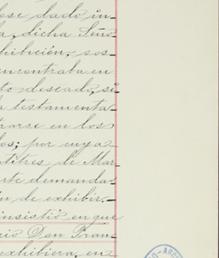 ose dado in-
a, dicha Seño
hibición, sos-
encontraba en
to deseado, si
a testamenta-
trarse en los
los; por cuya
títres de Mar
rte demanda
n de exhibir.
insistió en que
cio Don Fran-
exhibiera, en